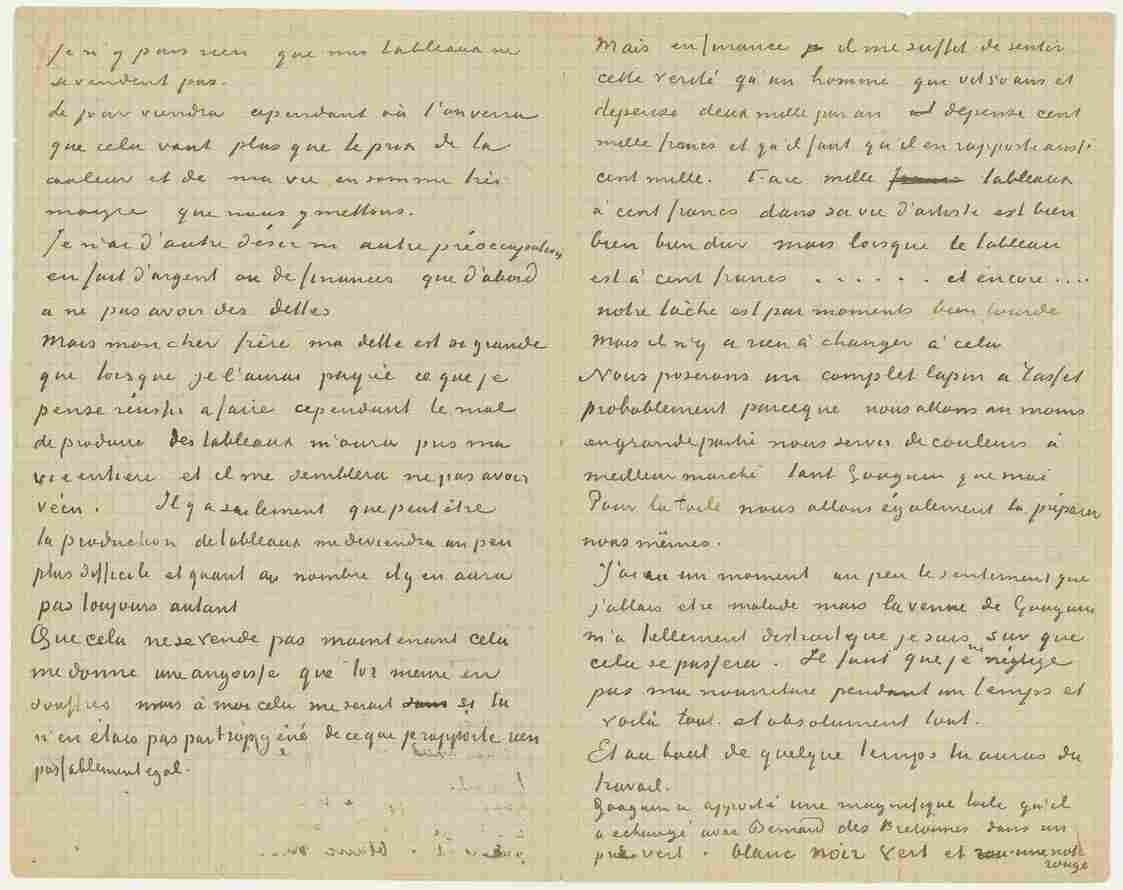 Je n'y puis rien que mes tableaux ne
se vendent pas.
Le jour viendra cependant où l'on verra
que cela vaut plus que le prix de la
couleur et de ma vie en somme très
maigre que nous y mettons.
Je n'ai d'autre désir ni autre préoccupation
en fait d'argent ou de finances que d'abord
a ne pas avoir des dettes
Mais mon cher frère ma dette est si grande
que lorsque je l'aurai payée ce que je
pense réussir a faire cependant le mal
de produire des tableaux m'aura pris ma
vie entière et il me semblera ne pas avoir
vécu. Il y a seulement que peut être
la production de tableaux me deviendra un peu
plus difficile et quant au nombre il y en aura
pas toujours autant
Que cela ne se vende pas maintenant cela
me donne une angoisse que toi meme en
souffres mais à moi cela me serait si tu
n'en étais pas par trop gêné de ce que je rapporte rien
passablement egal.
Mais en finance il me suffit de sentir
cette verité qu'un homme que vit 50 ans et
depense deux mille par an depense cent
mille francs et qu'il faut qu'il en rapporte aussi
cent mille. Faire mille francs tableaux
à cent francs dans sa vie d'artiste est bien
bien bien dur mais lorsque le tableau
est à cent francs . . . . . . et encore ....
notre tâche est par moments bien lourde
Mais il n'y a rien à changer à cela
Nous poserons un complet lapin a Tasset
probablement parceque nous allons au moins
en grande partie nous servir de couleurs à
meilleur marché tant Gauguin que moi
Pour la toile nous allons également la préparer
nous mêmes.
J'ai eu un moment un peu le sentiment que
j'allais etre malade mais la venue de Gauguin
m'a tellement distrait que je suis sur que
cela se passera. Il faut que je ne néglige
pas ma nourriture pendant un temps et
voilà tout. et absolument tout.
Et au bout de quelque temps tu auras du
travail.
Gauguin a apporté une magnifique toile qu'il
a echangé avec Bernard des Bretonnes dans un
pré vert. blanc noir vert et une note
rouge